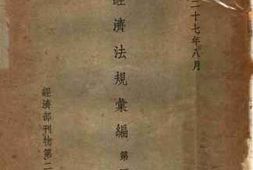 二十七年八月
經濟法規彙編 第
經濟部刊物第二